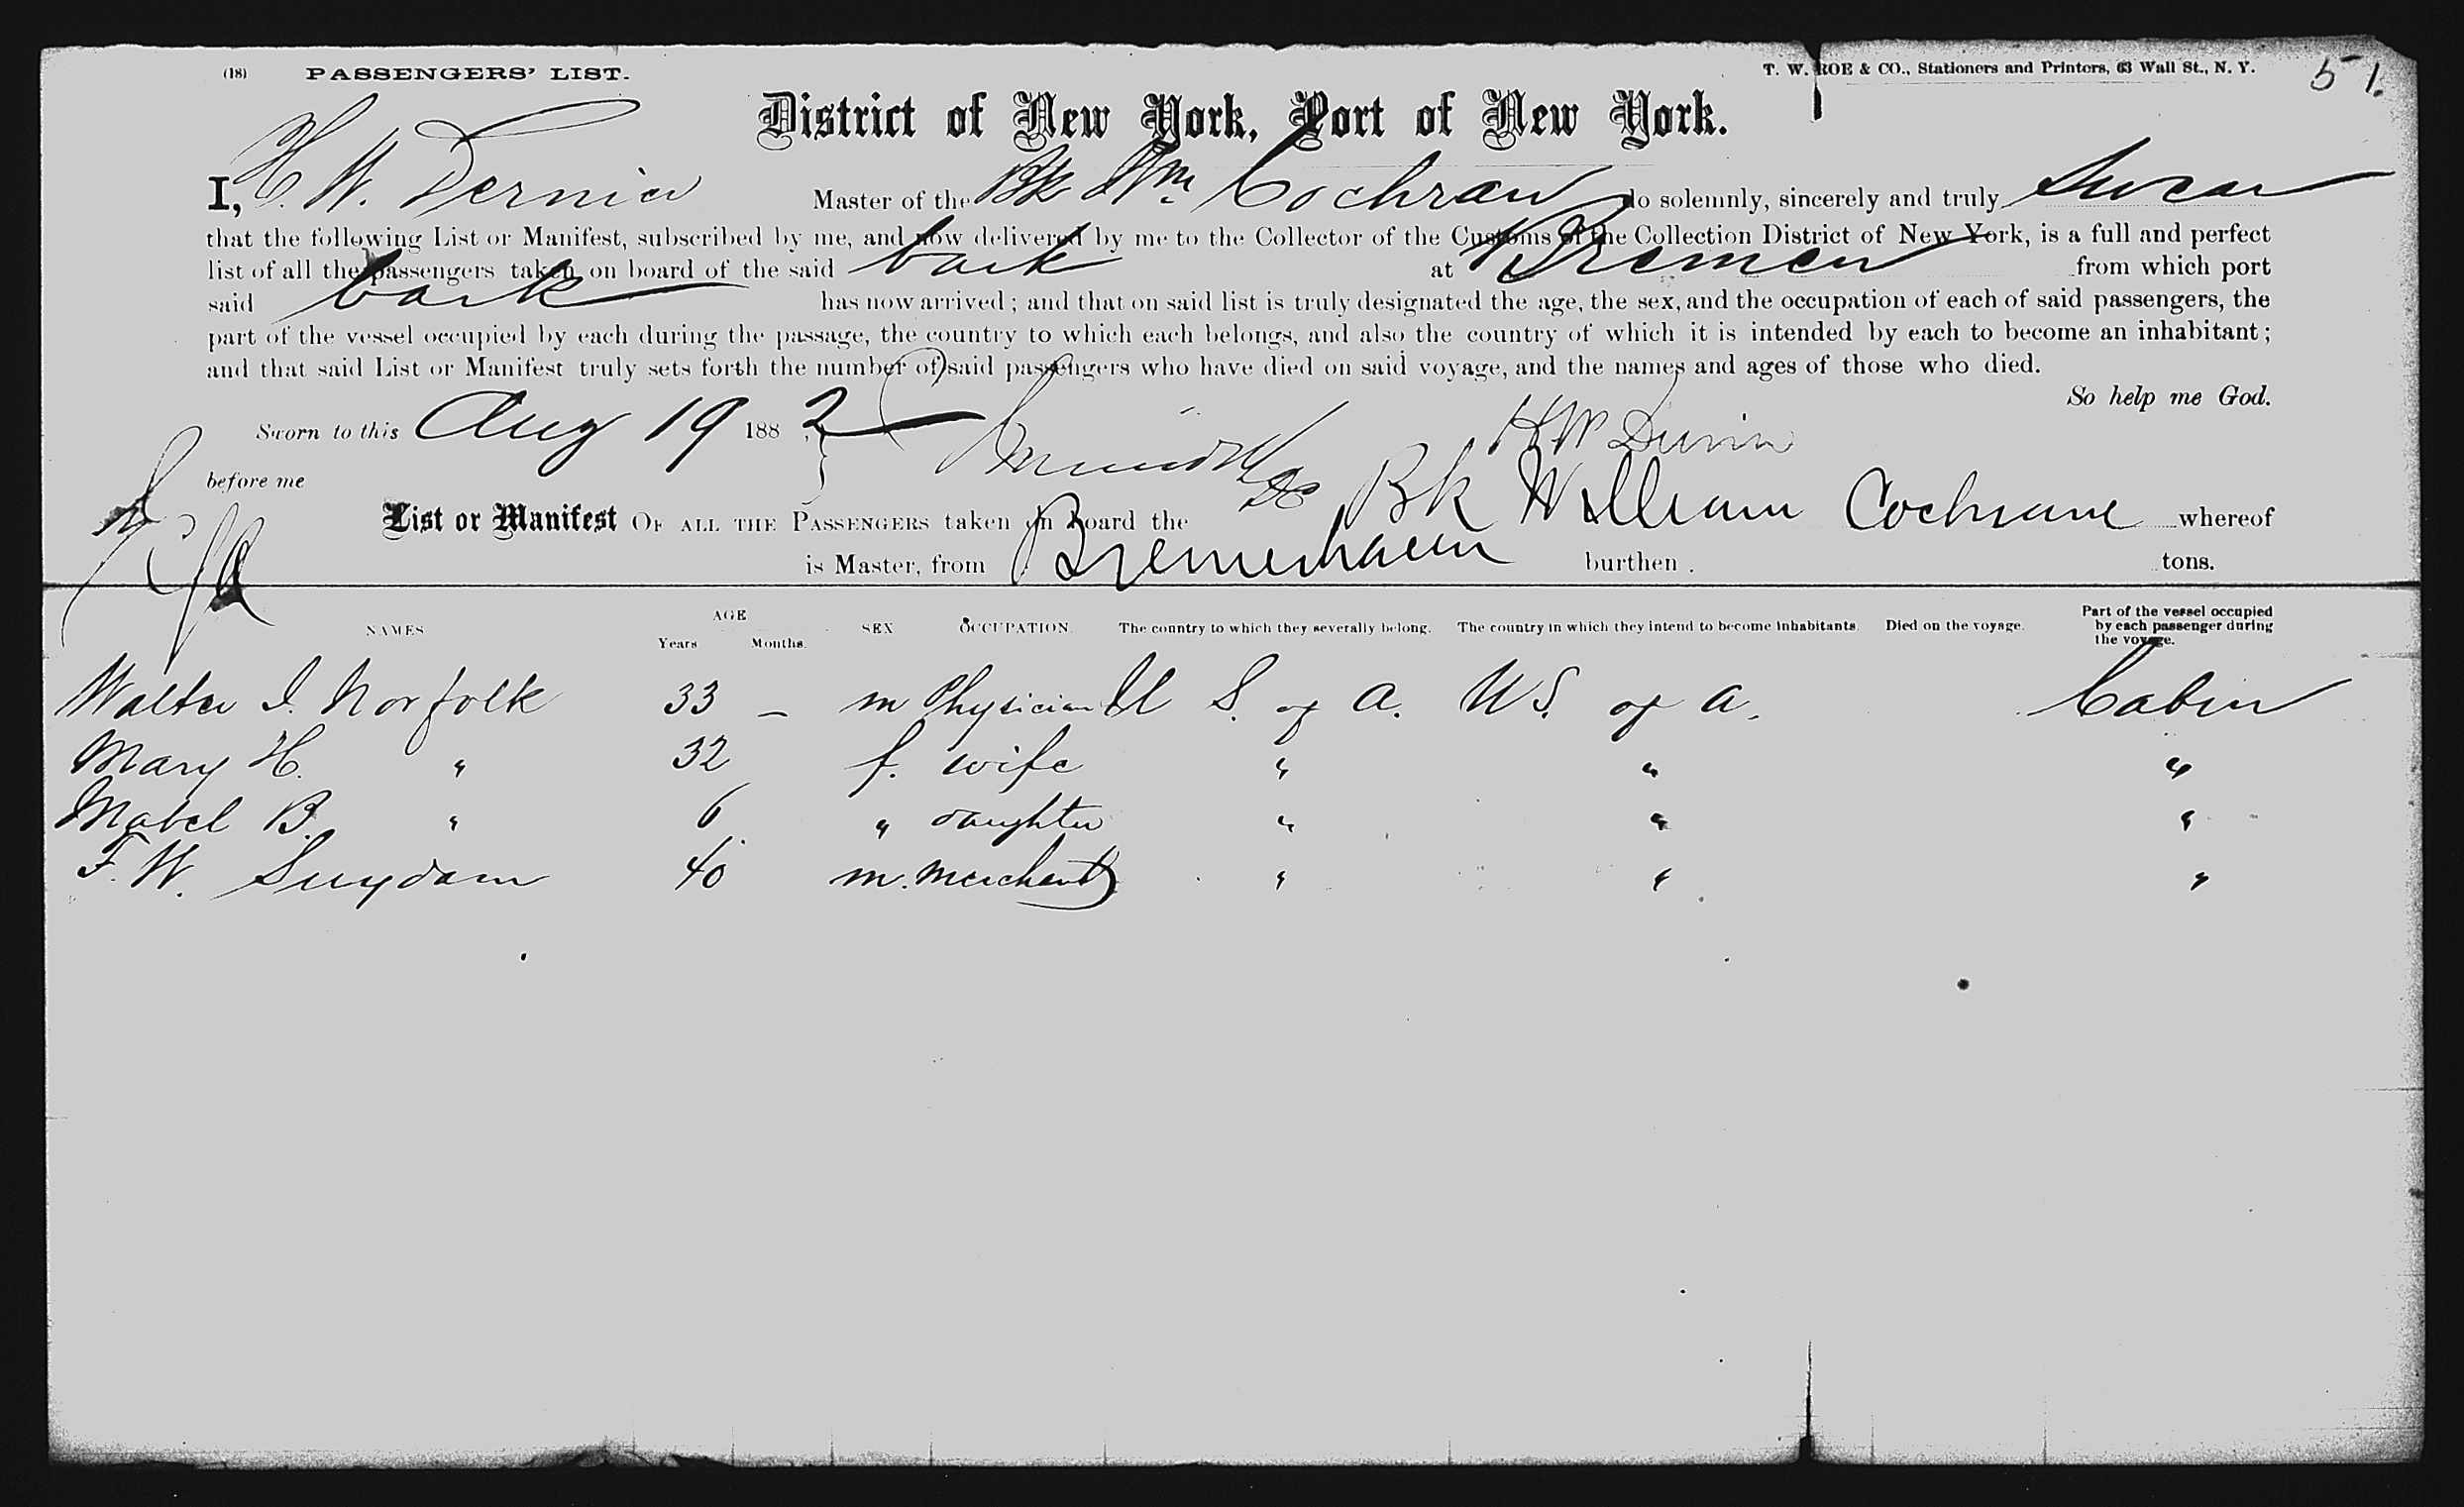 (18) PASSENGERS' LIST. T. W. ROE & CO., Stationers and Printers, 63 Wall St., N. Y. 51.
District of New York, Port of New York.
I, H. W. Master of the Bk Wm Cochran do solemnly, sincerely and truly Swear
that the following List or Manifest, subscribed by me, and now delivered by me to the Collector of the Customs of the Collection District of New York, is a full and perfect
list of all the passengers taken on board of the said bark at Bremen from which port
said bark has now arrived; and that on said list is truly designated the age, the sex, and the occupation of each of said passengers, the
part of the vessel occupied by each during the passage, the country to which each belongs, and also the country of which it is intended by each to become an inhabitant;
and that said List or Manifest truly sets forth the number of said passengers who have died on said voyage, and the names and ages of those who died.
So help me God.
Sworn to this Aug 19 1882 H W
before me
List or Manifest OF ALL THE PASSENGERS taken on Board the Bk William Cochrane whereof
is Master, from Bremerhaven burthen . tons.
NAMES AGE Years Months. SEX OCCUPATION. The country to which they severally belong. The country in which they intend to become inhabitants. Died on the voyage. Part of the vessel occupied by each passenger during the voyage.
Walter I. Norfolk 33 — m Physician U S. of A. U S. of A. Cabin
Mary H. " 32 f. wife " " "
Mabel B. " 6 " daughter " " "
F. W. Suydam 40 m. merchant " " "